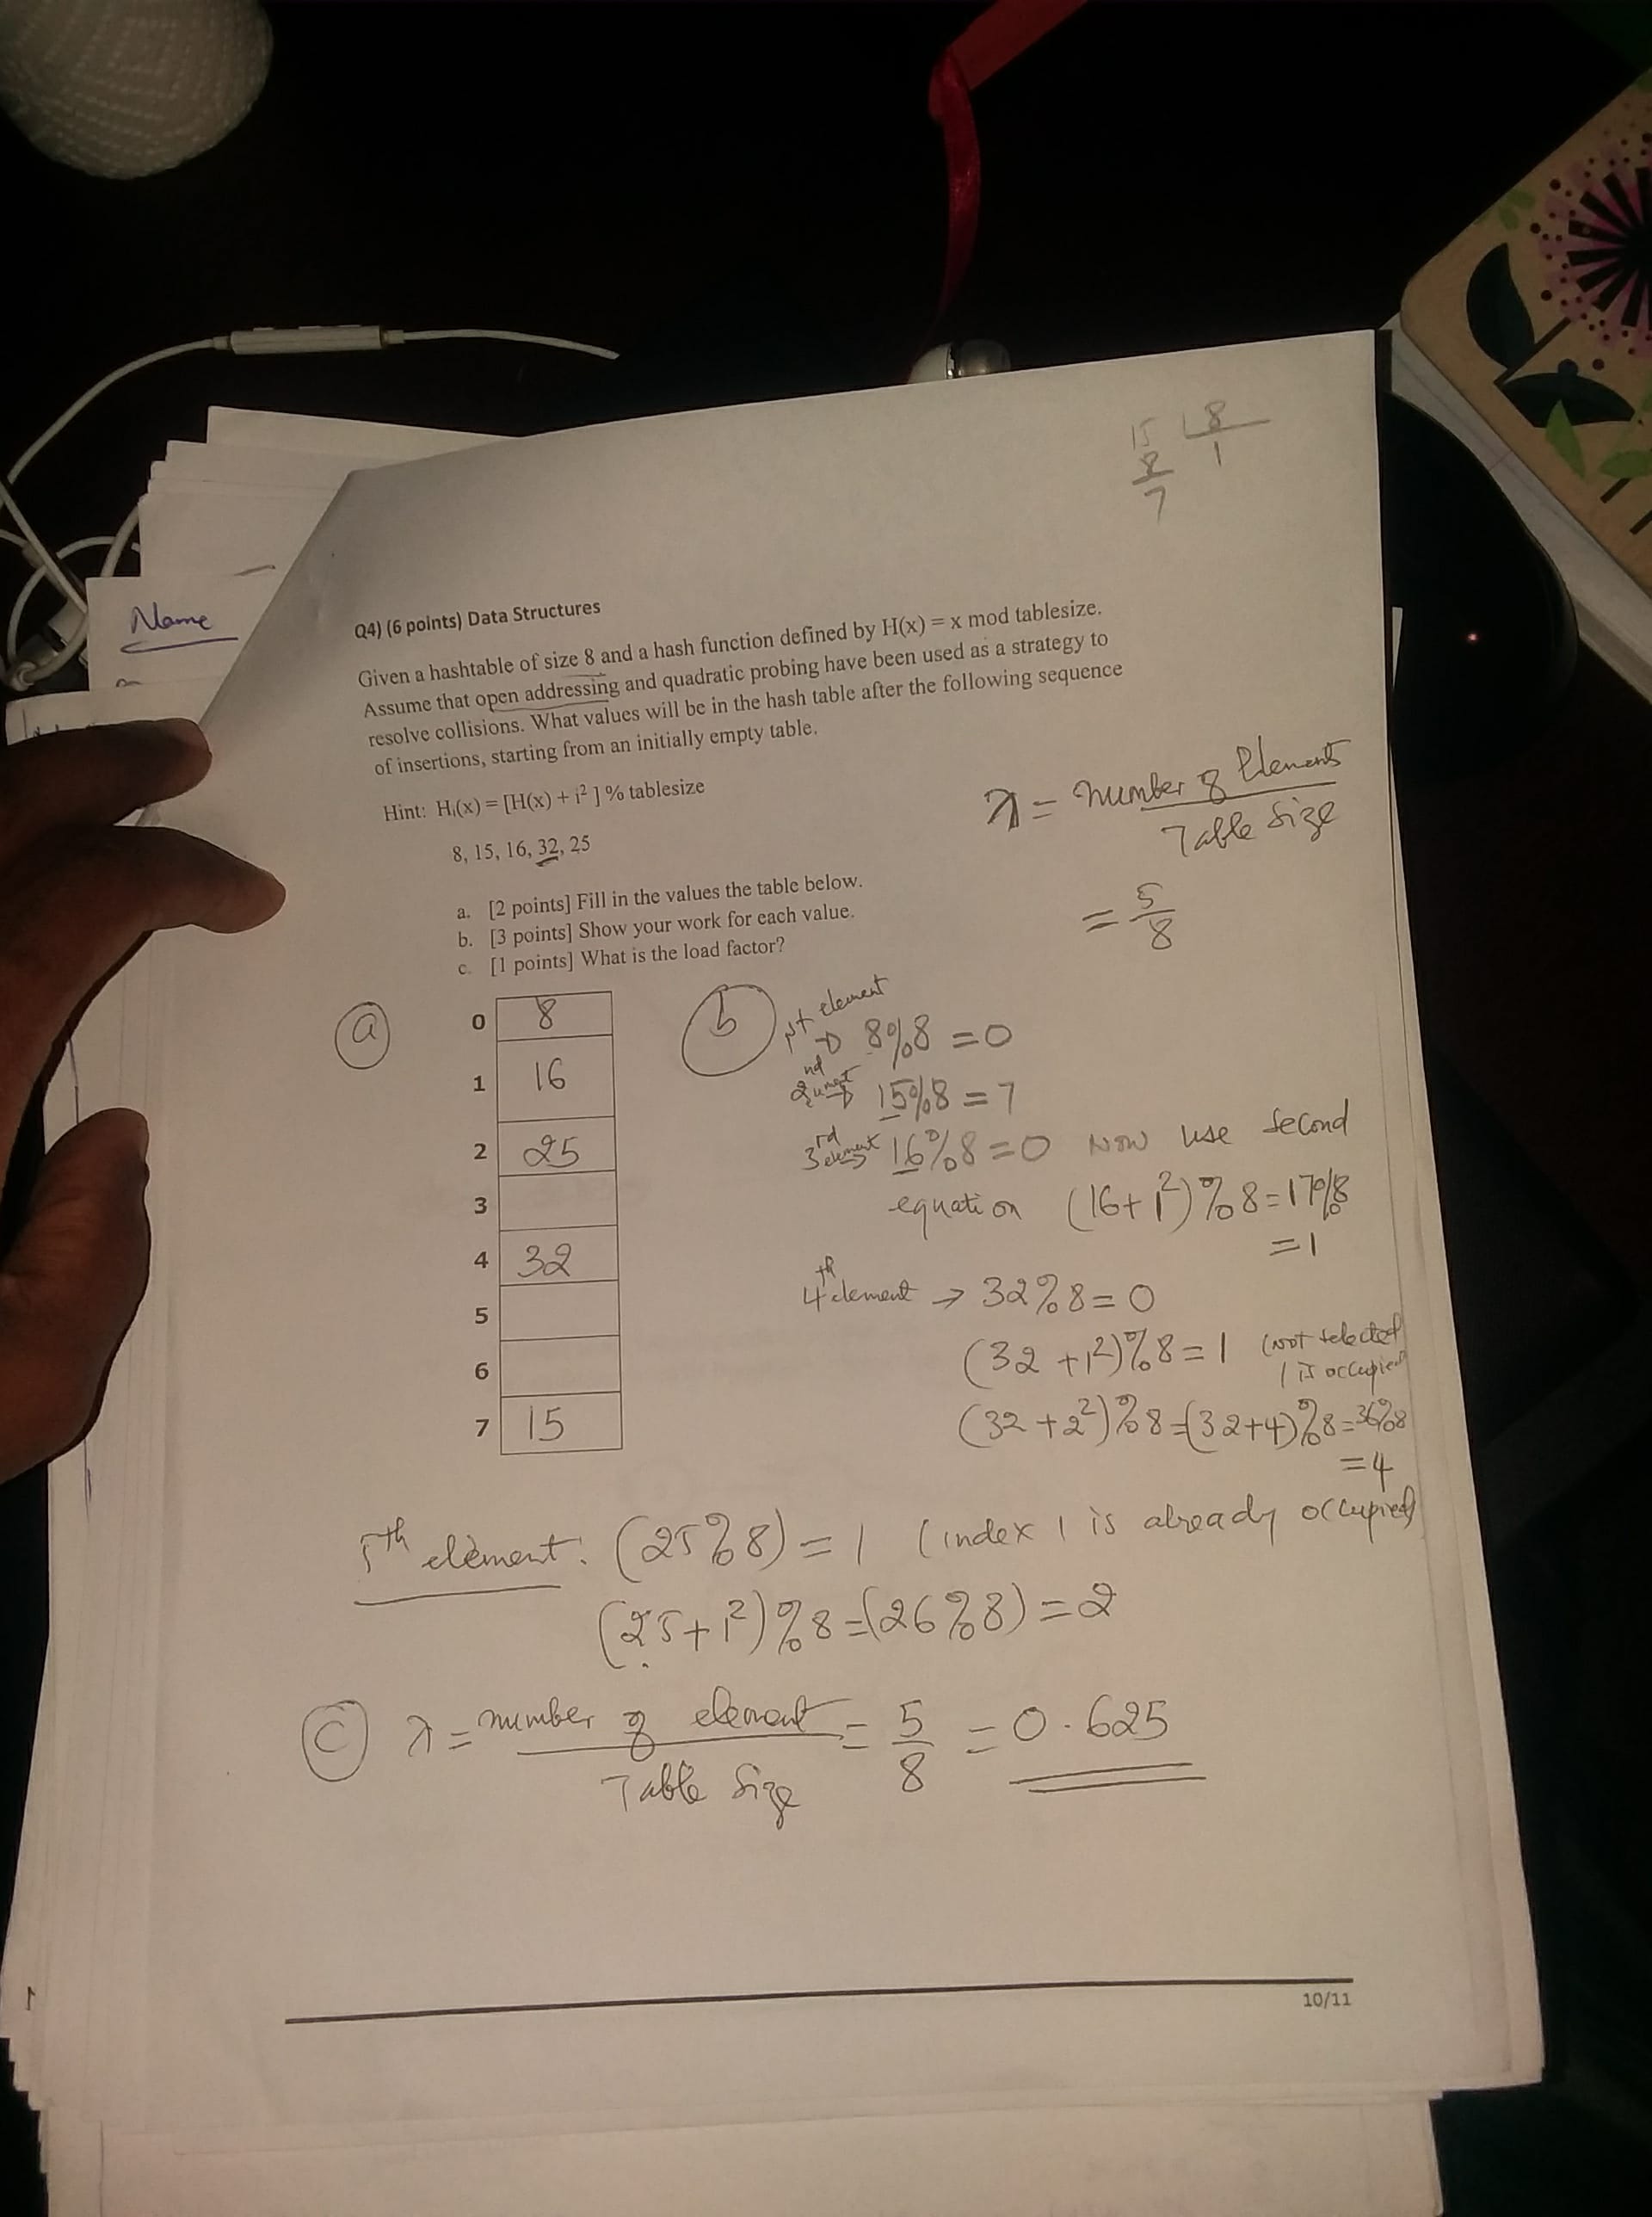 15 8
8 1
7
Name
Q4) (6 points) Data Structures
Given a hashtable of size 8 and a hash function defined by H(x) = x mod tablesize.
Assume that open addressing and quadratic probing have been used as a strategy to
resolve collisions. What values will be in the hash table after the following sequence
of insertions, starting from an initially empty table.
Hint: Hᵢ(x) = [H(x) + i² ] % tablesize
8, 15, 16, 32, 25
λ = number of Elements
Table Size
= 5
8
a. [2 points] Fill in the values the table below.
b. [3 points] Show your work for each value.
c. [1 points] What is the load factor?
a
0 8
1 16
2 25
3
4 32
5
6
7 15
b
1st element → 8%8 = 0
2nd → 15%8 = 7
3rd element 16%8 = 0 Now use second
equation (16+1²)%8 = 17%8
= 1
4th element → 32%8 = 0
(32 + 1²)%8 = 1 (not selected
1 is occupied
(32 + 2²)%8 = (32+4)%8 = 36%8
= 4
5th element: (25%8) = 1 (index 1 is already occupied)
(25+1²)%8 = (26%8) = 2
c λ = number of element = 5 = 0.625
Table Size 8
10/11